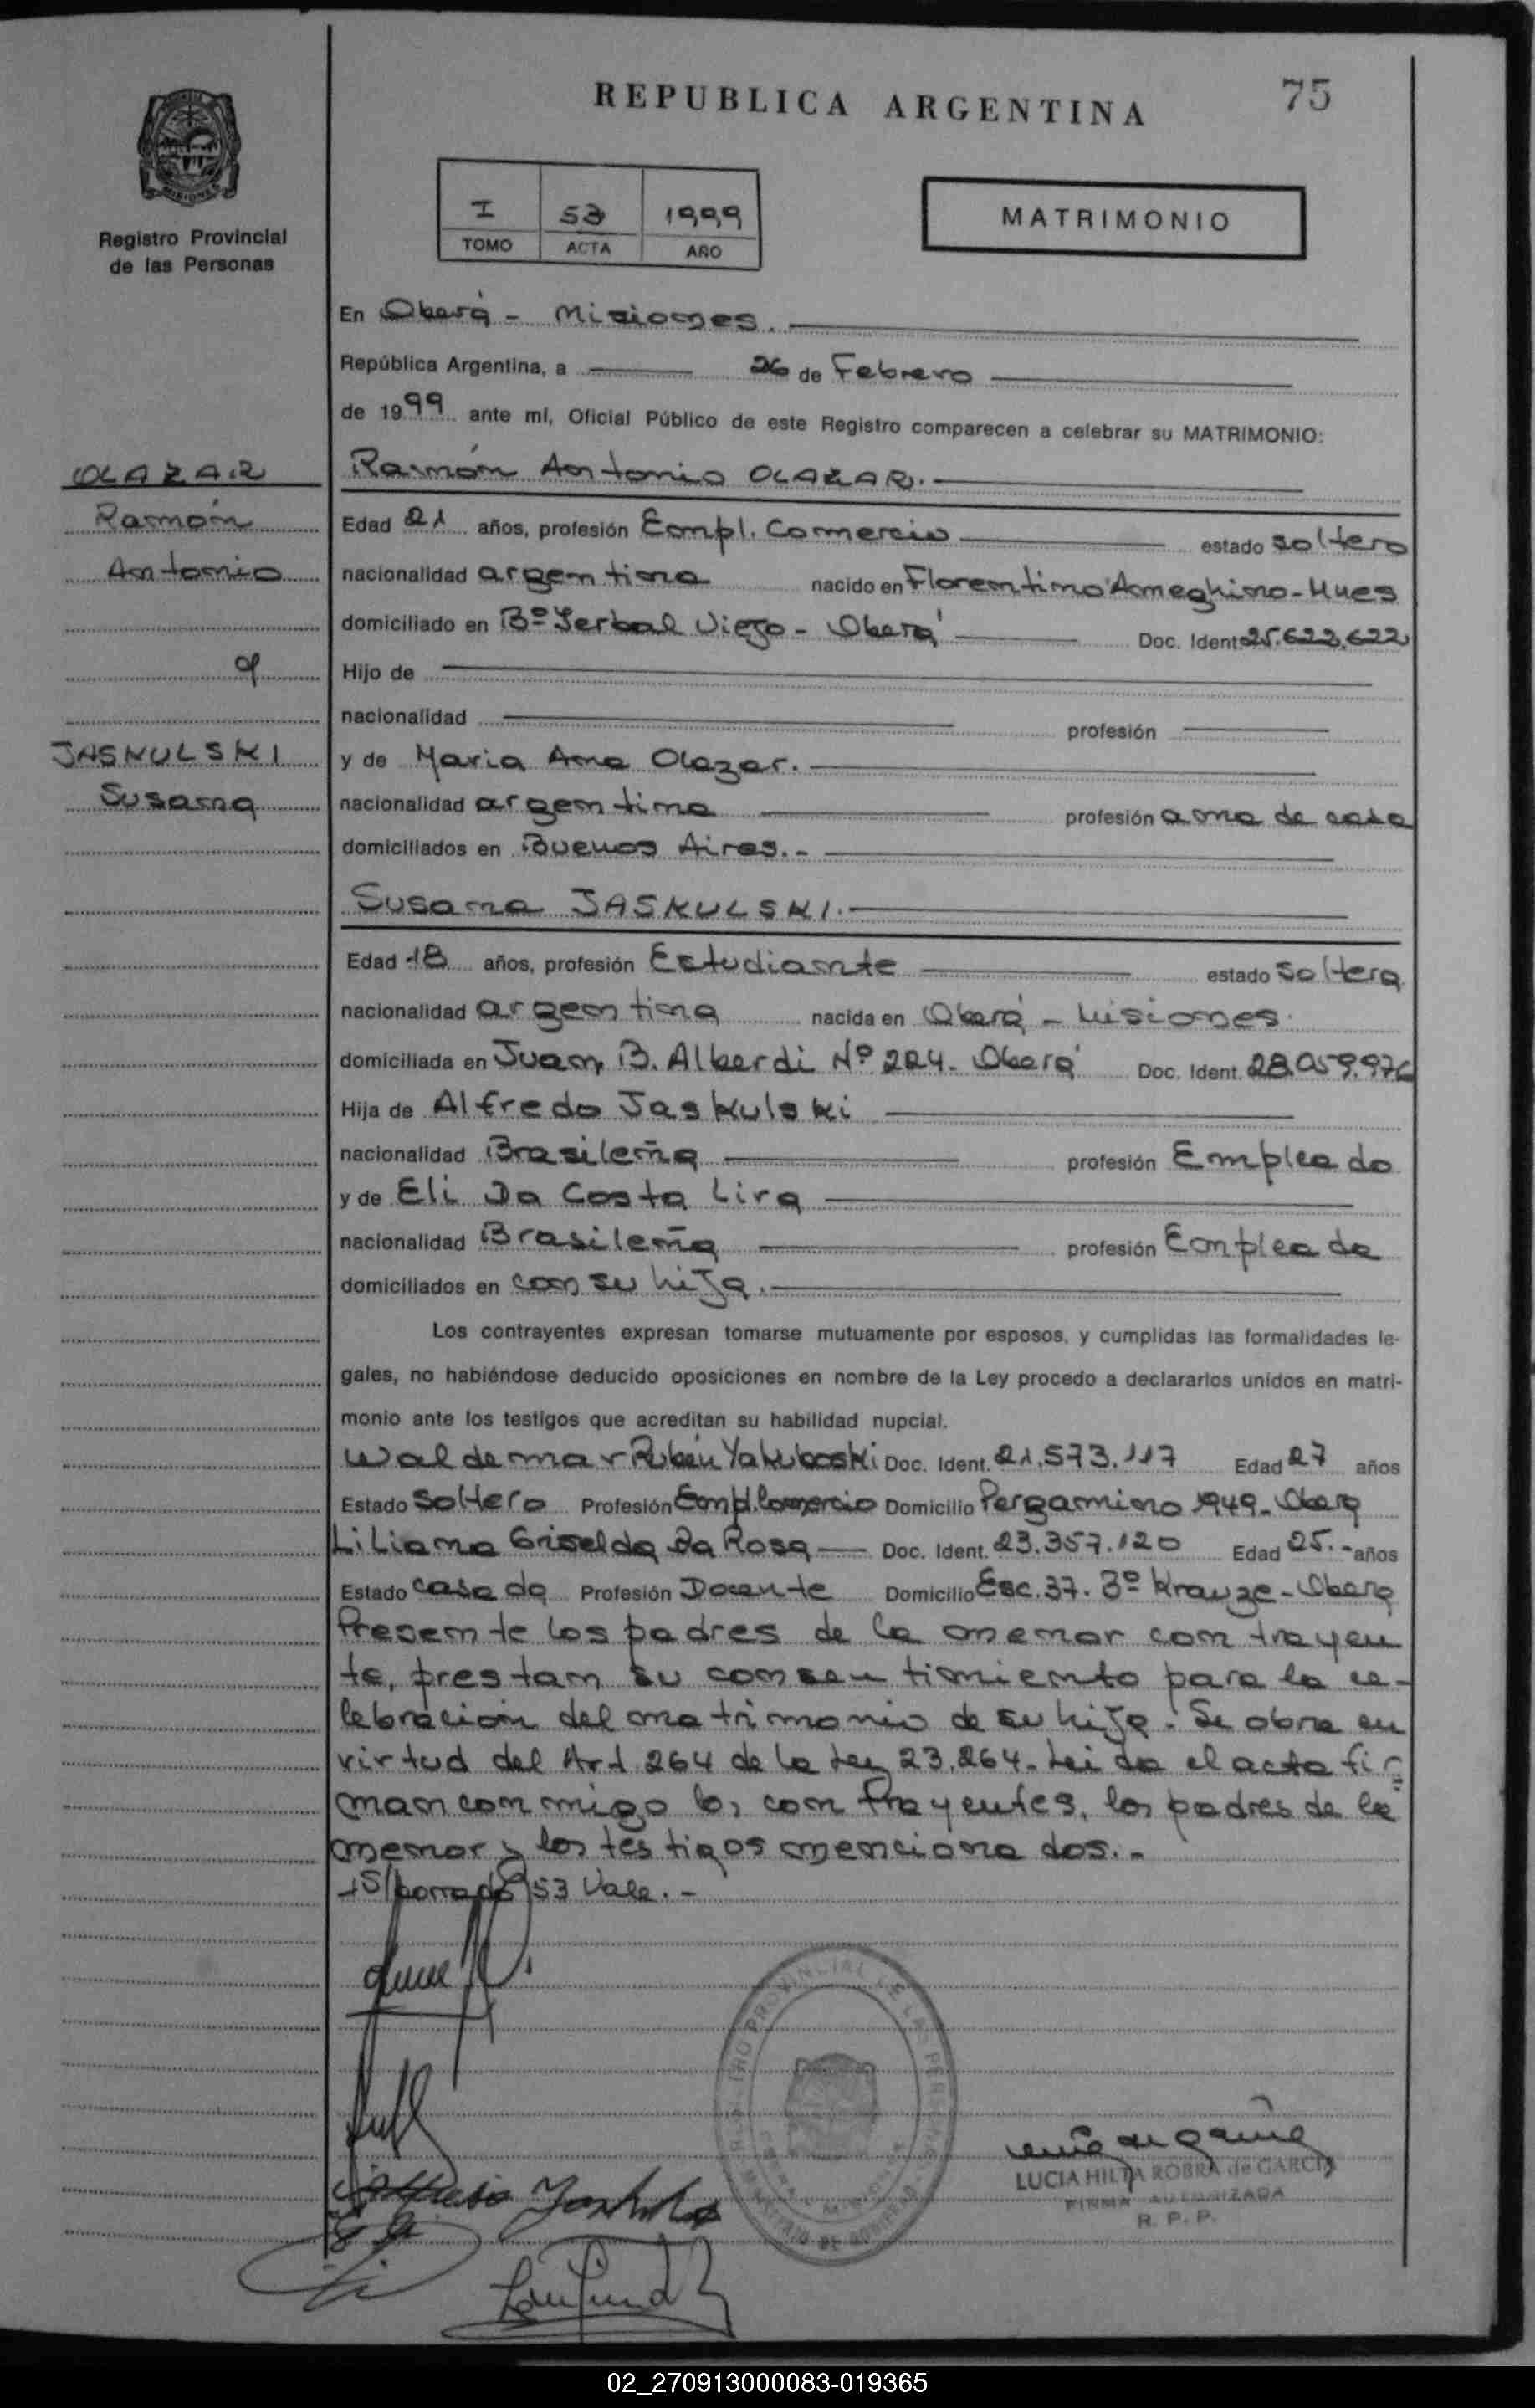 REPUBLICA ARGENTINA
75
Registro Provincial
de las Personas
I 53 1999
TOMO ACTA AÑO
MATRIMONIO
En Oberá - Misiones.
República Argentina, a 26 de Febrero
de 1999 ante mí, Oficial Público de este Registro comparecen a celebrar su MATRIMONIO:
OLAZAR
Ramón
Antonio
JASKULSKI
Susana
Ramón Antonio OLAZAR.-
Edad 21 años, profesión Empl. Comercio estado soltero
nacionalidad argentina nacido en Florentino Ameghino-Mnes
domiciliado en Bº Yerbal Viejo - Oberá Doc. Ident. 25.622.622
Hijo de
nacionalidad profesión
y de Maria Ana Olazar.
nacionalidad argentina profesión ama de casa
domiciliados en Buenos Aires.-
Susana JASKULSKI.-
Edad 18 años, profesión Estudiante estado soltera
nacionalidad argentina nacida en Oberá - Misiones.
domiciliada en Juan B. Alberdi Nº 224- Oberá Doc. Ident. 28.059.976
Hija de Alfredo Jaskulski
nacionalidad Brasileña profesión Empleado
y de Eli Da Costa Lira
nacionalidad Brasileña profesión Empleada
domiciliados en con su hija.
Los contrayentes expresan tomarse mutuamente por esposos, y cumplidas las formalidades le-
gales, no habiéndose deducido oposiciones en nombre de la Ley procedo a declararlos unidos en matri-
monio ante los testigos que acreditan su habilidad nupcial.
Waldemar Rubén Yakuboski Doc. Ident. 21.573.117 Edad 27 años
Estado soltero Profesión Empl. Comercio Domicilio Pergamino 1949- Oberá
Liliana Griselda Da Rosa Doc. Ident. 23.357.120 Edad 25.- años
Estado casada Profesión Docente Domicilio Esc. 37. Bº Krauze - Oberá
Presente los padres de la menor contrayen
te, prestan su consentimiento para la ce-
lebración del matrimonio de su hija. Se obra en
virtud del Art. 264 de la Ley 23.264. Leida el acta fir-
man conmigo los contrayentes, los padres de la
menor y los testigos mencionados.-
S/borrado 53 Vale.-
LUCIA HILDA ROBRA de GARCIA
FIRMA AUTORIZADA
R. P. P.
02_270913000083-019365